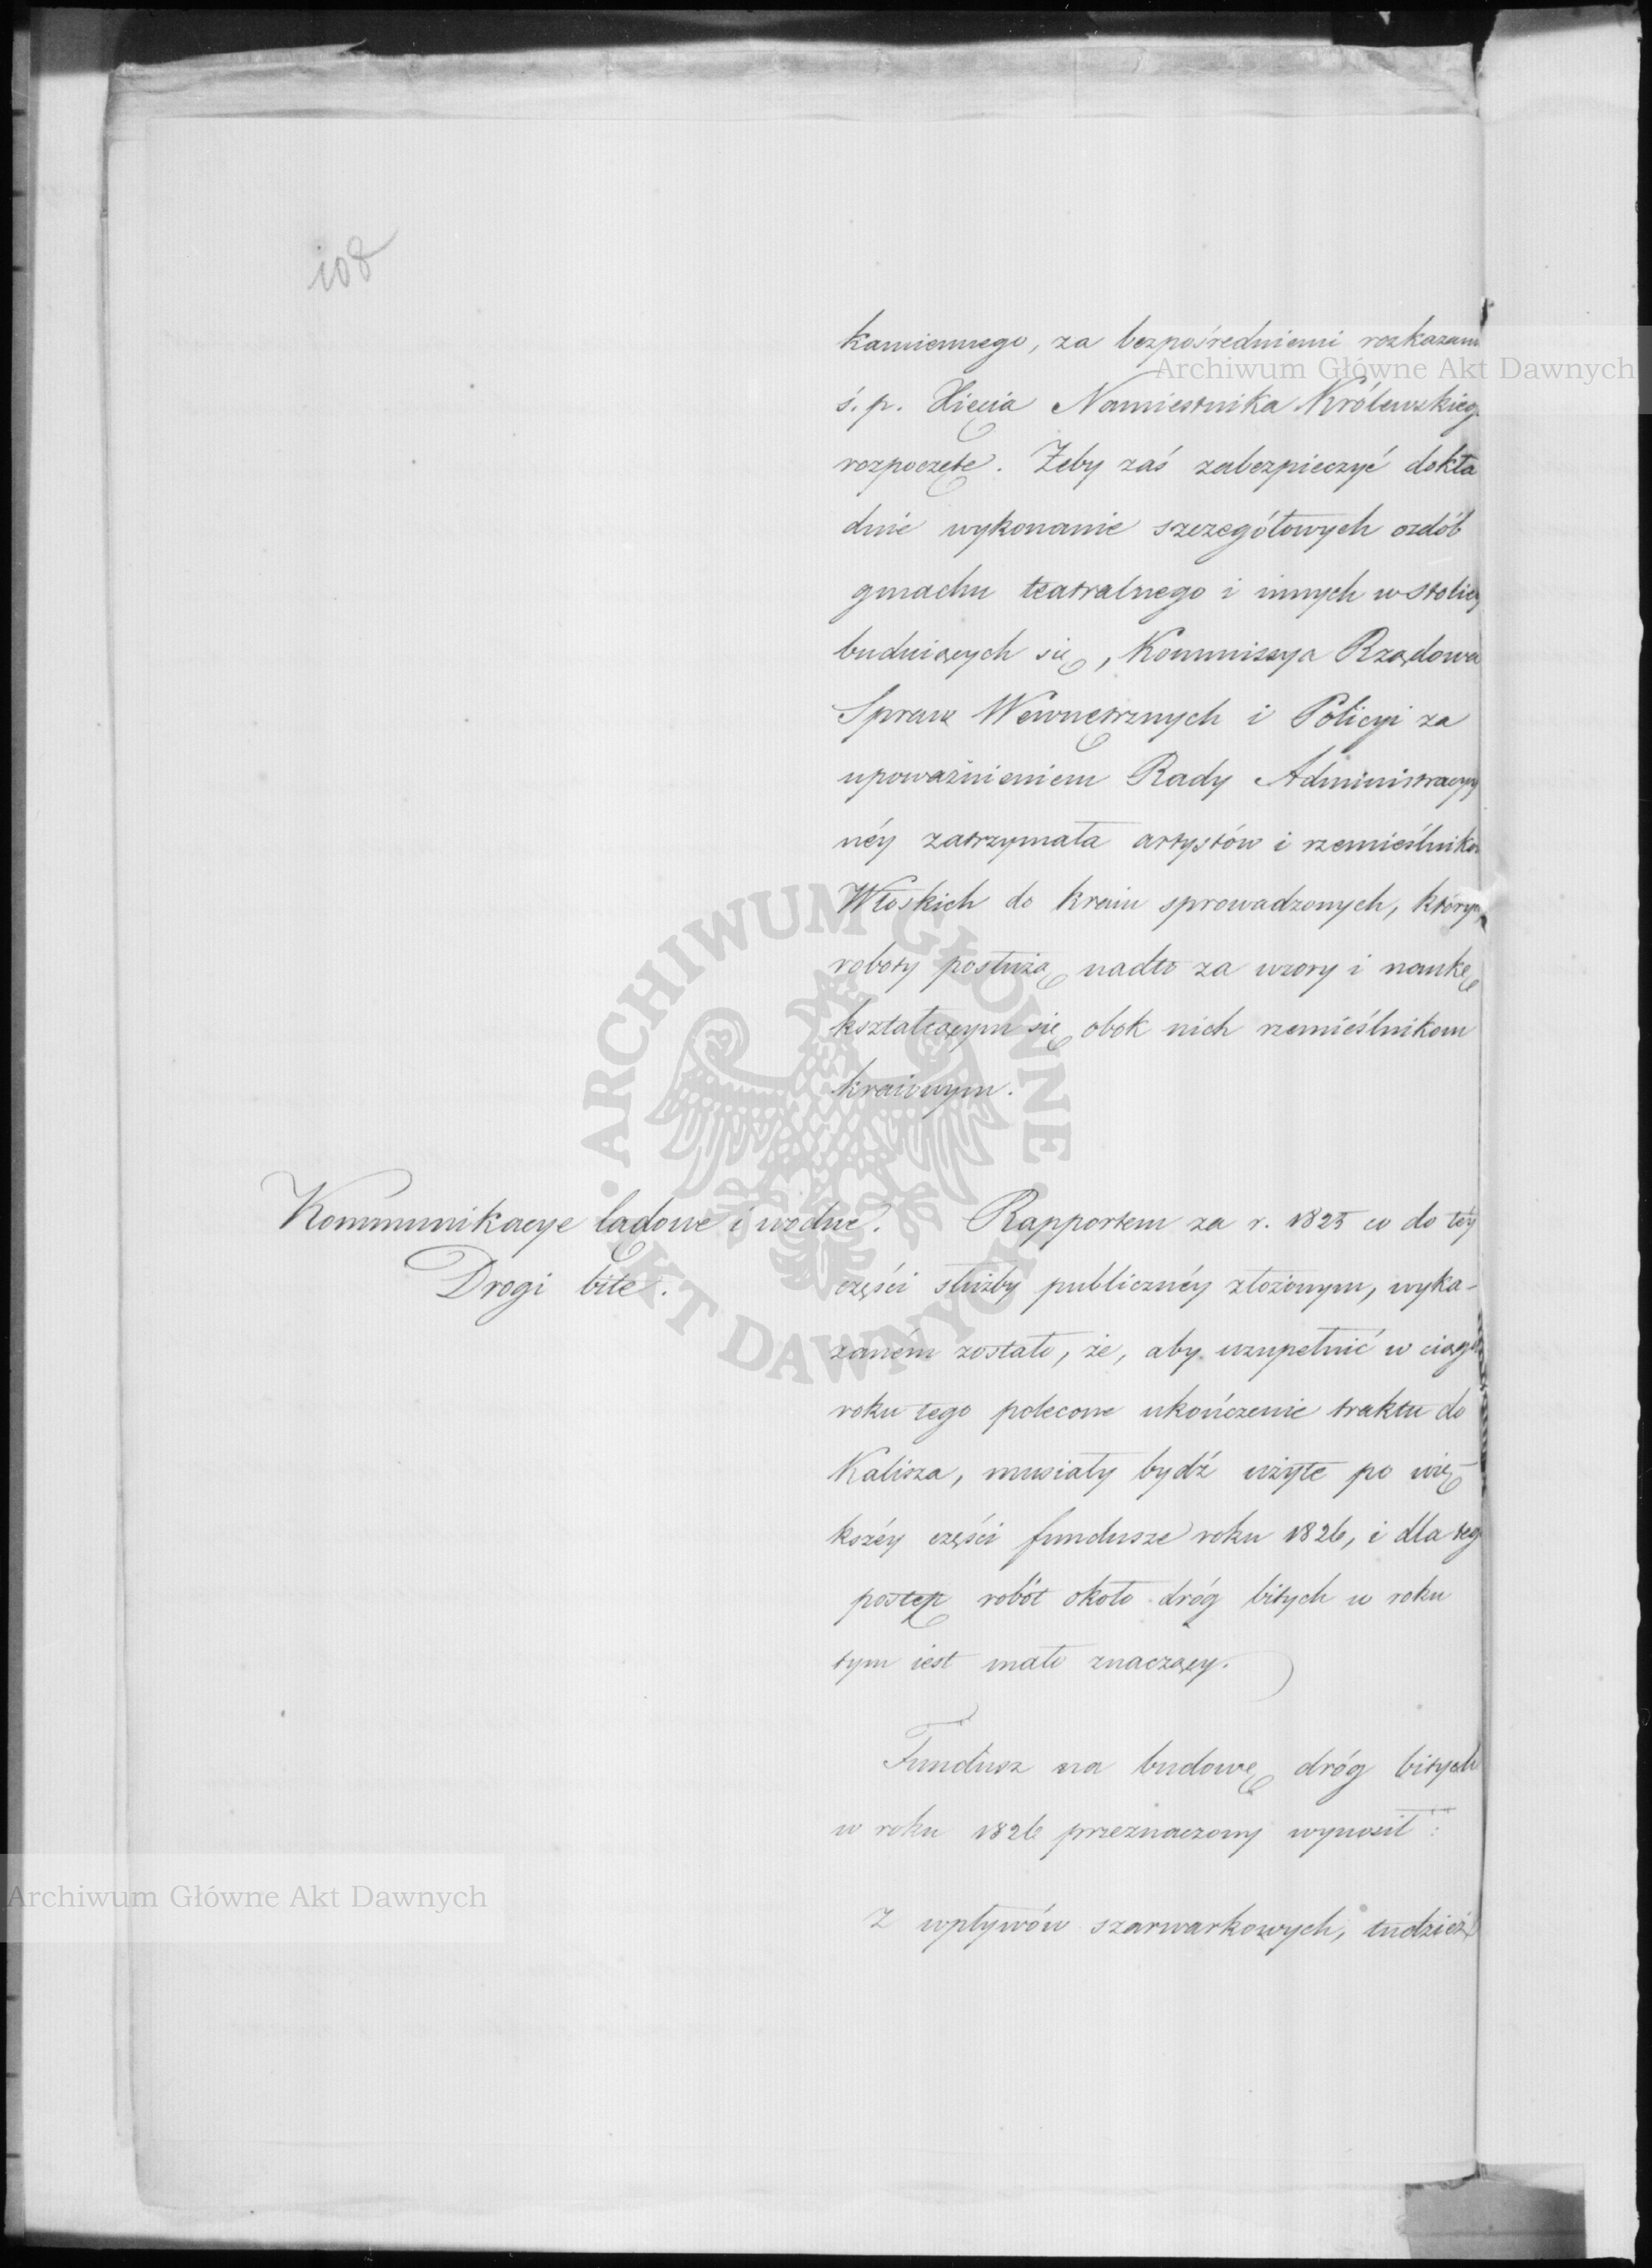 108
kamiennego, za bezpośredniemi rozkazami
ś. p. Xięcia Namiestnika Królewskiego
rozpoczęte. Żeby zaś zabezpieczyć dokła
dnie wykonanie szczegółowych ozdób
gmachu teatralnego i innych w stolicy
buduiących się, Kommissya Rządowa
Spraw Wewnętrznych i Policyi za
upoważnieniem Rady Administracyy
néy zatrzymała artystów i rzemieślników
Włoskich do kraiu sprowadzonych, których
roboty posłużą nadto za wzory i naukę
kształcącym się obok nich rzemieślnikom
kraiowym.
Kommunikacye lądowe i wodne.
Drogi bite.
Rapportem za r. 1825 co do téy
części służby publicznéy złożonym, wyka-
zaném zostało, że, aby uzupełnić w ciągu
roku tego polecone ukończenie traktu do
Kalisza, musiały bydź użyte po wię-
kszéy części fundusze roku 1826, i dla tego
postęp robót około dróg bitych w roku
tym iest mało znaczący.
Fundusz na budowę dróg bitych
w roku 1826 przeznaczony wynosił:
Z wpływów szarwarkowych, tudzież
Archiwum Główne Akt Dawnych
Archiwum Główne Akt Dawnych
ARCHIWUM GŁÓWNE AKT DAWNYCH